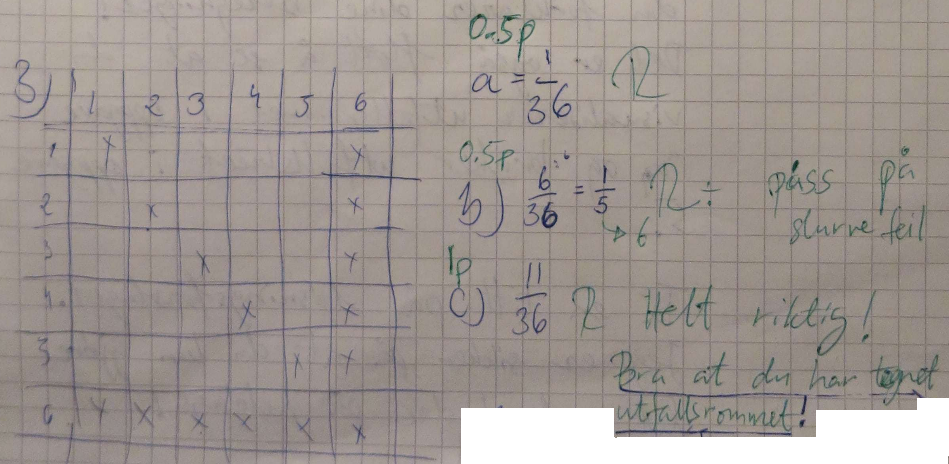 3) 1 2 3 4 5 6
1 x x
2 x x
3 x x
4 x x
5 x x
6 x x x x x x
0.5p
a = 1/36 R
0.5p
b) 6/36 :6 = 1/5 R÷ pass på
→ 6 slurvefeil
1p
c) 11/36 R Helt riktig!
Bra at du har tegnet
utfallsrommet!